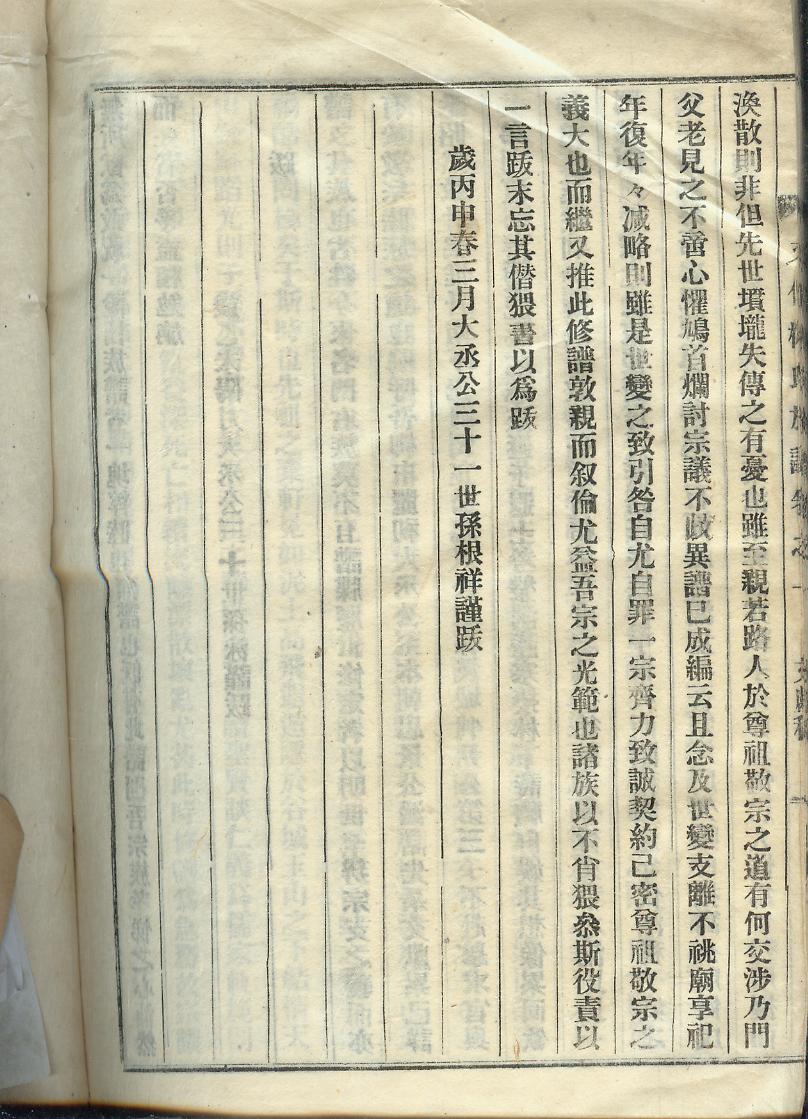 渙散則非但先世墳壠失傳之有憂也雖至親若路人於尊祖敬宗之道有何交涉乃門
父老見之不啻心懼鳩首爛討宗議不歧異譜已成編云且念及世變支離不祧廟享祀
年復年々減略則雖是世變之致引咎自尤自罪一宗齊力致誠契約己密尊祖敬宗之
義大也而繼又推此修譜敦親而叙倫尤益吾宗之光範也諸族以不肖猥叅斯役責以
一言跋末忘其僭猥書以爲跋
歲丙申春三月大丞公三十一世孫根祥謹跋